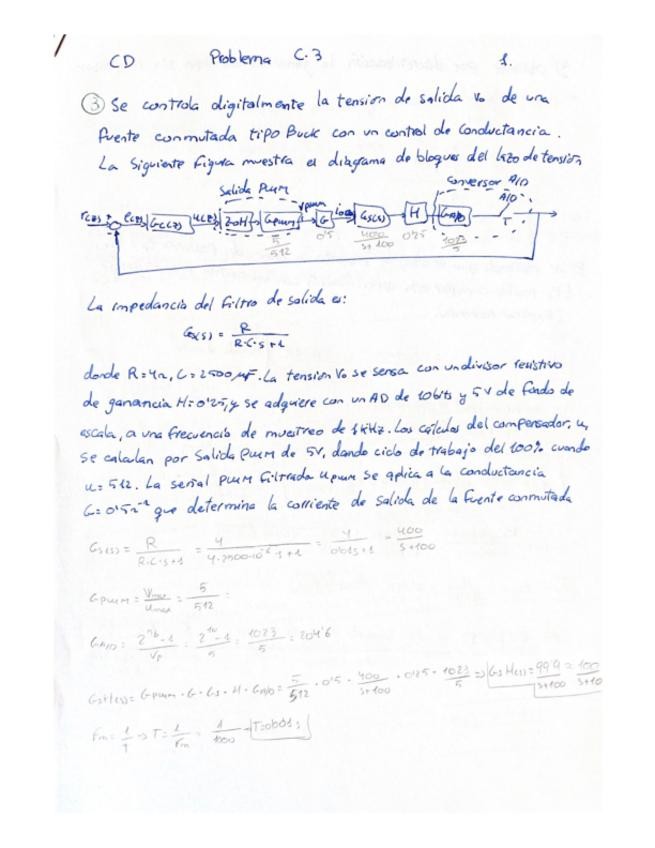 CD Problema C.3 1.
③ Se controla digitalmente la tensión de salida Vo de una
fuente conmutada tipo Buck con un control de conductancia.
La siguiente figura muestra el diagrama de bloques del lazo de tensión
Salida PWM Conversor A/D
r(z) e(z) Gc(z) u(z) ZOH Gpwm vpwm G Gs(s) H GA/D A/D T
5/512 0'5 400/s+100 0'25 1023/5
La impedancia del filtro de salida es:
Gs(s) = R / R·C·s+1
donde R=4Ω, C=2500μF. La tensión Vo se sensa con un divisor resistivo
de ganancia H=0'25, y se adquiere con un AD de 10bits y 5V de fondo de
escala, a una frecuencia de muestreo de 1kHz. Los cálculos del compensador, u,
se calculan por salida PWM de 5V, dando ciclo de trabajo del 100% cuando
u=512. La señal PWM filtrada upwm se aplica a la conductancia
G=0'5Ω⁻¹ que determina la corriente de salida de la fuente conmutada
Gs(s) = R / R·C·s+1 = 4 / 4·2500·10⁻⁶·s+1 = 4 / 0'01s+1 = 400 / s+100
Gpwm = Vmax / Umax = 5 / 512
GA/D = 2^nb-1 / VF = 2^10-1 / 5 = 1023 / 5 = 204'6
GsH(s) = Gpwm·G·Gs·H·GA/D = 5/512 · 0'5 · 400/s+100 · 0'25 · 1023/5 ⇒ GsH(s) = 99'9 / s+100 ≈ 100 / s+100
Fm = 1/T → T = 1/Fm = 1/1000 → T=0'001s